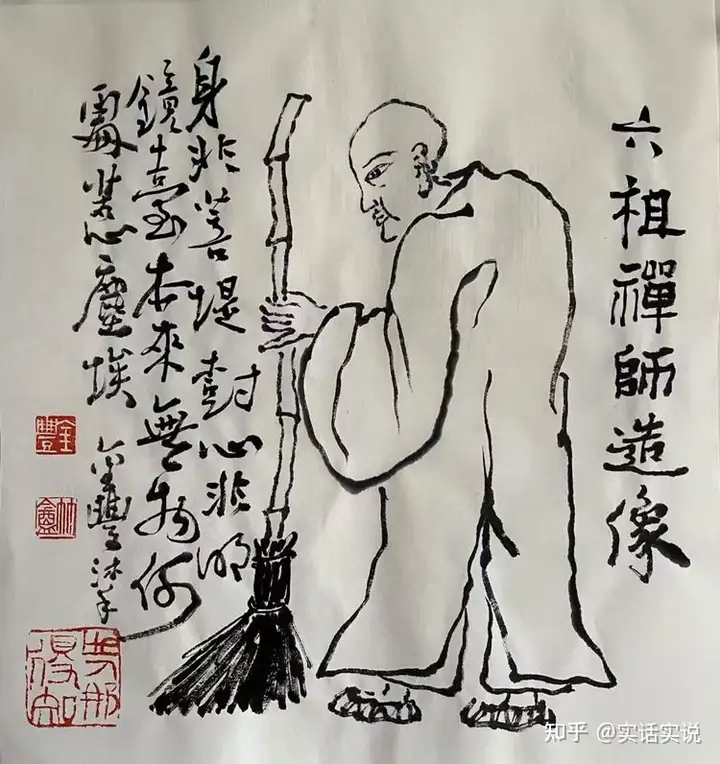 六祖禪師造像
身非菩提尌心非明
鏡臺本來無物何
處惹塵埃
金豐沐手
金豐
知乎 @实话实说